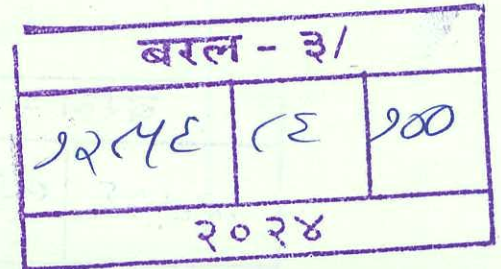 बरल - ३/
१२८५६ ८६ १००
२०२४